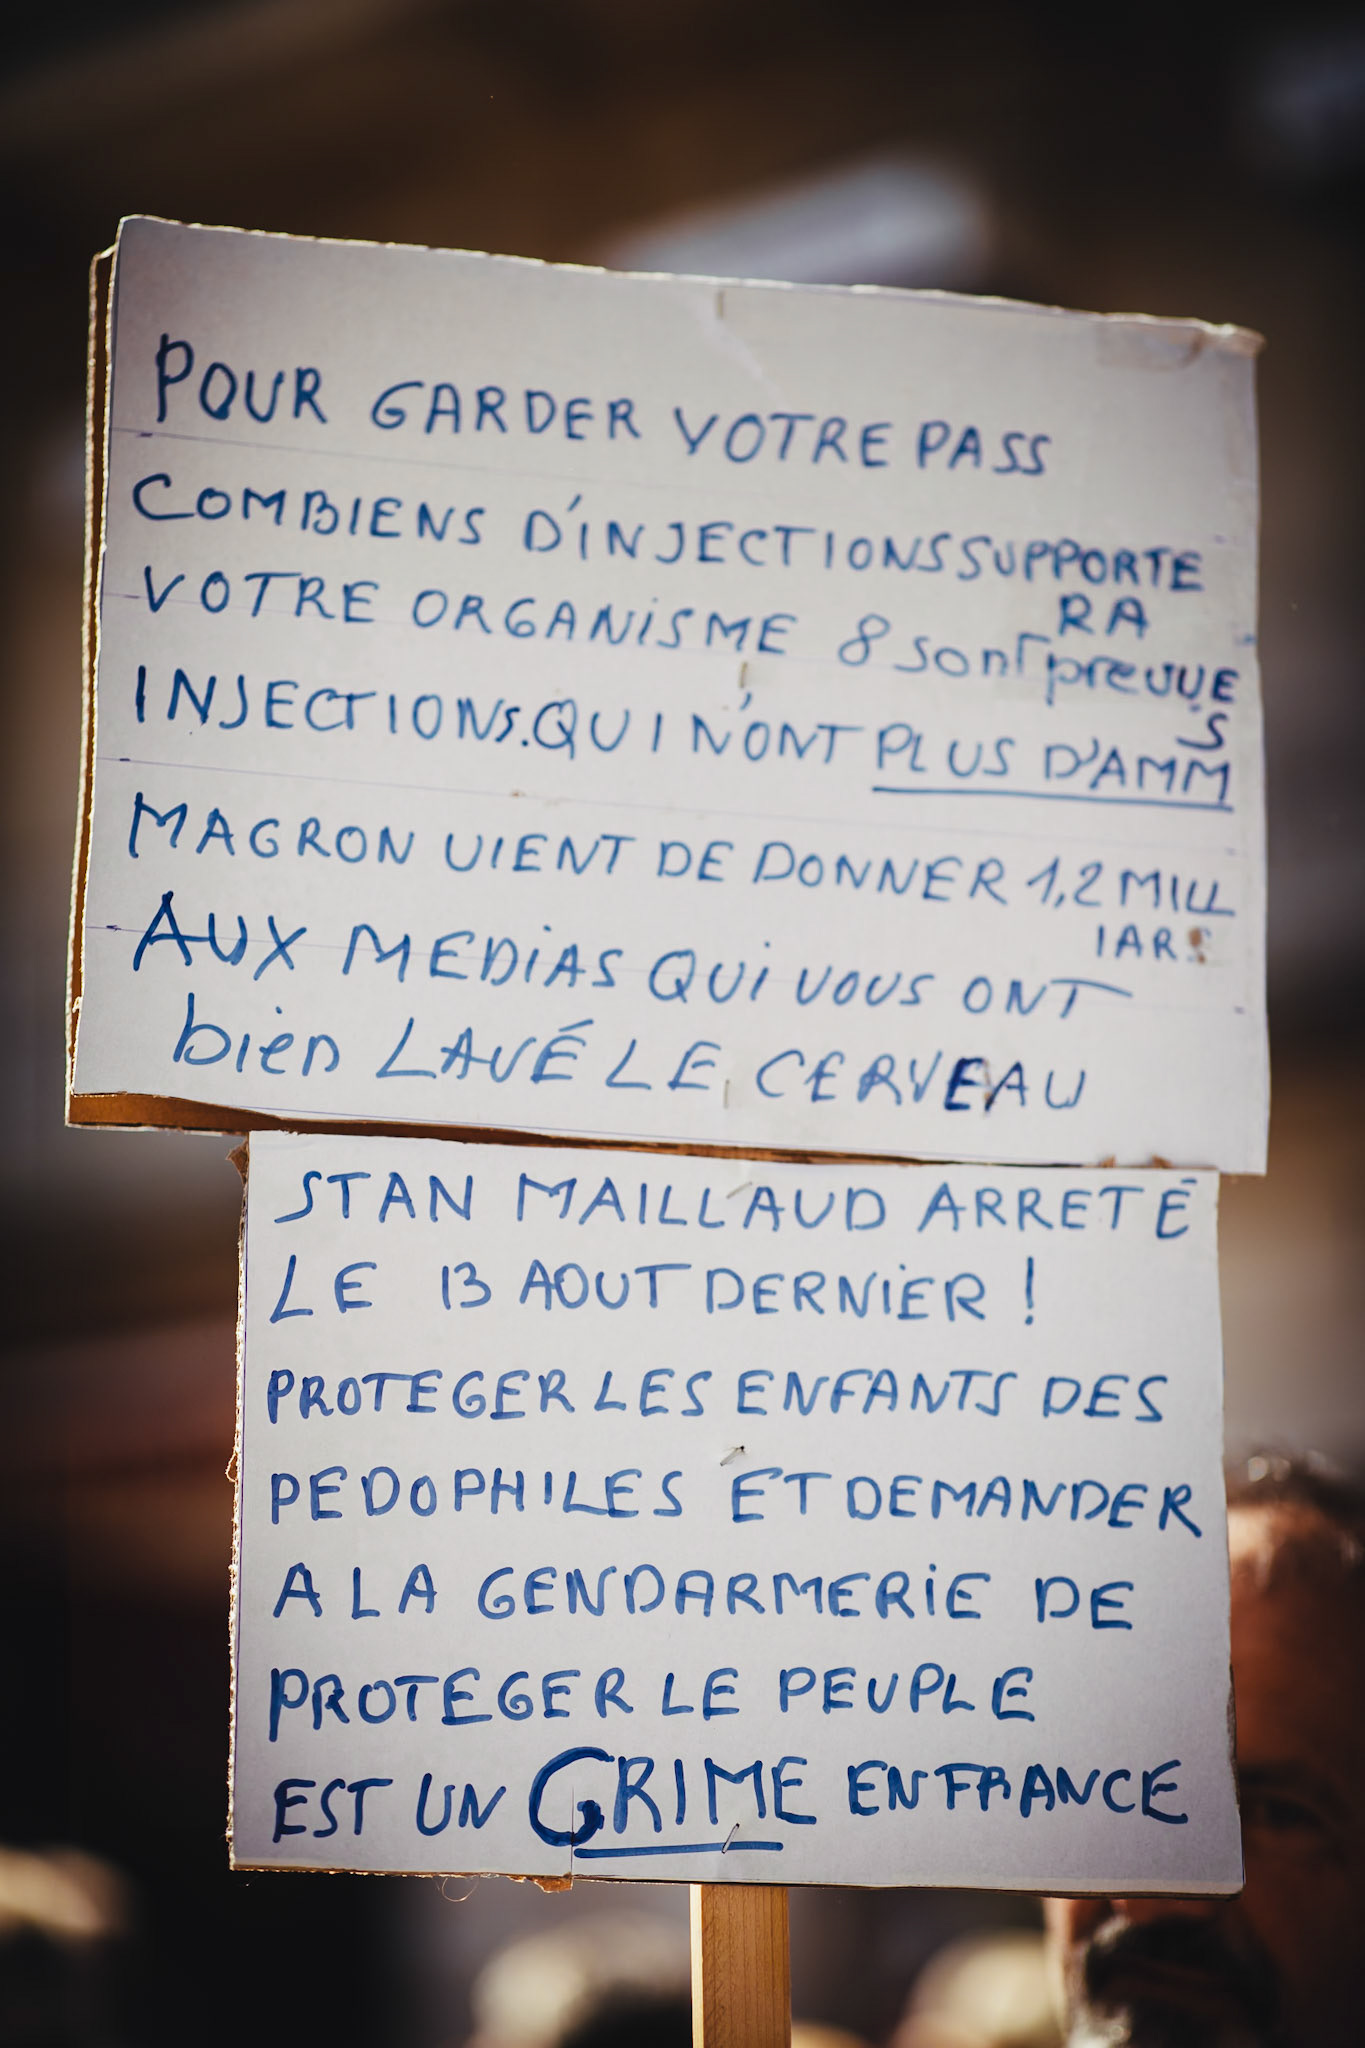 POUR GARDER VOTRE PASS
COMBIENS D'INJECTIONS SUPPORTE
RA
VOTRE ORGANiSME 8 sont prevuE
S
INJECTIONS. QUI N'ONT PLUS D'AMM
MAGRON VIENT DE DONNER 1,2 MILL
IARS
AUX MEDiAS QUi VOUS ONT
bien LAVÉ LE CERVEAU
STAN MAILLAUD ARRETÉ
LE 13 AOUT DERNiER !
PROTEGER LES ENFANTS DES
PEDOPHILES ET DEMANDER
A LA GENDARMERiE DE
PROTEGER LE PEUPLE
EST UN CRIME EN FRANCE